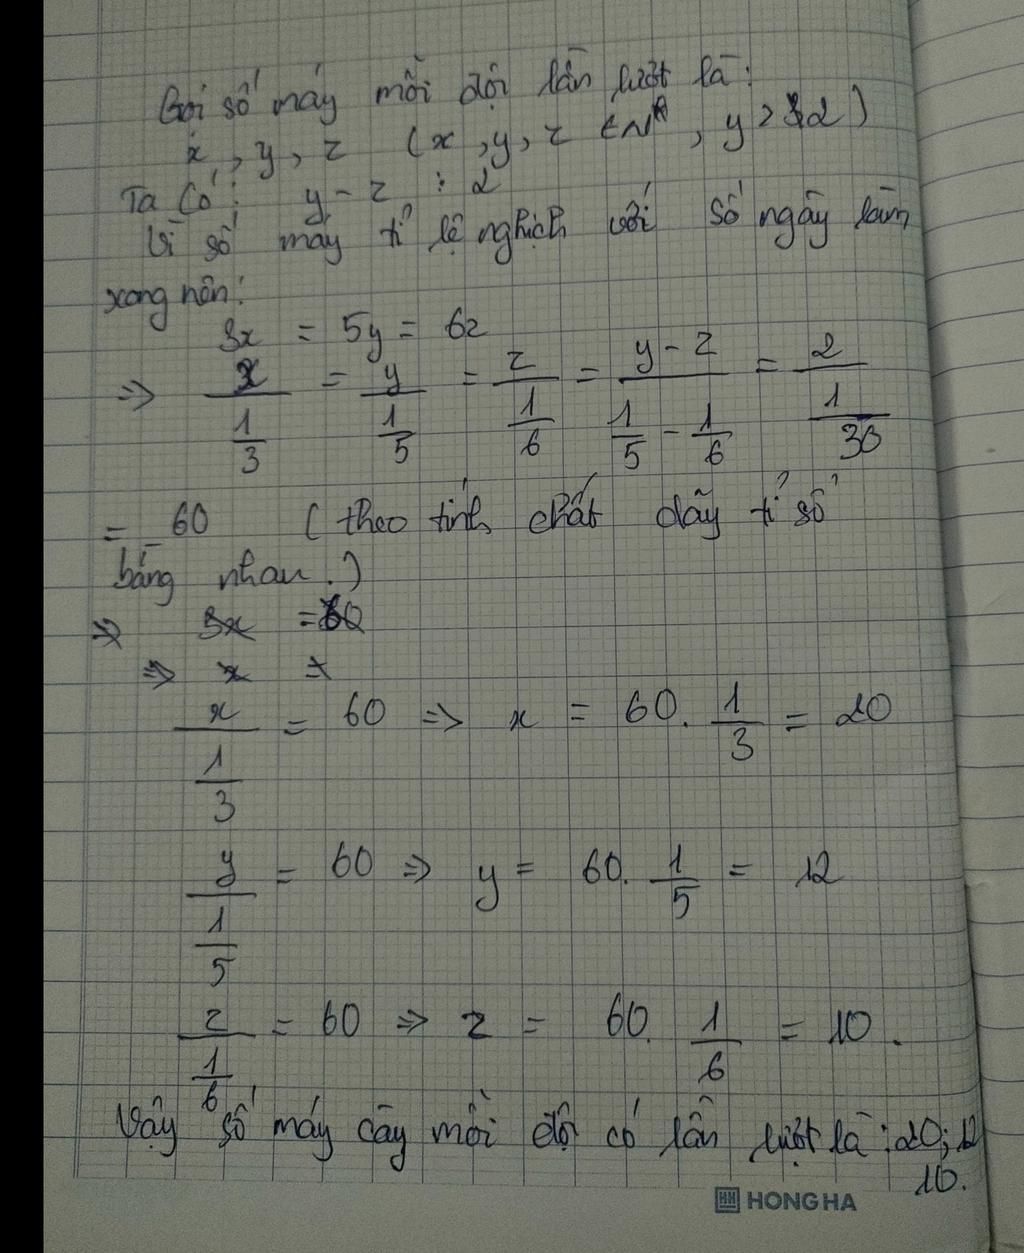 Gọi số máy mỗi đội lần lượt là:
x, y, z (x, y, z ∈ N*, y > 2)
Ta có: y - z = 2
Vì số máy tỉ lệ nghịch với số ngày làm
xong nên:
3x = 5y = 6z
=> x/(1/3) = y/(1/5) = z/(1/6) = (y - z)/(1/5 - 1/6) = 2/(1/30)
= 60 (theo tính chất dãy tỉ số
bằng nhau.)
x/(1/3) = 60 => x = 60. 1/3 = 20
y/(1/5) = 60 => y = 60. 1/5 = 12
z/(1/6) = 60 => z = 60. 1/6 = 10.
Vậy số máy cày mỗi đội có lần lượt là: 20; 12
10.
HH HONG HA